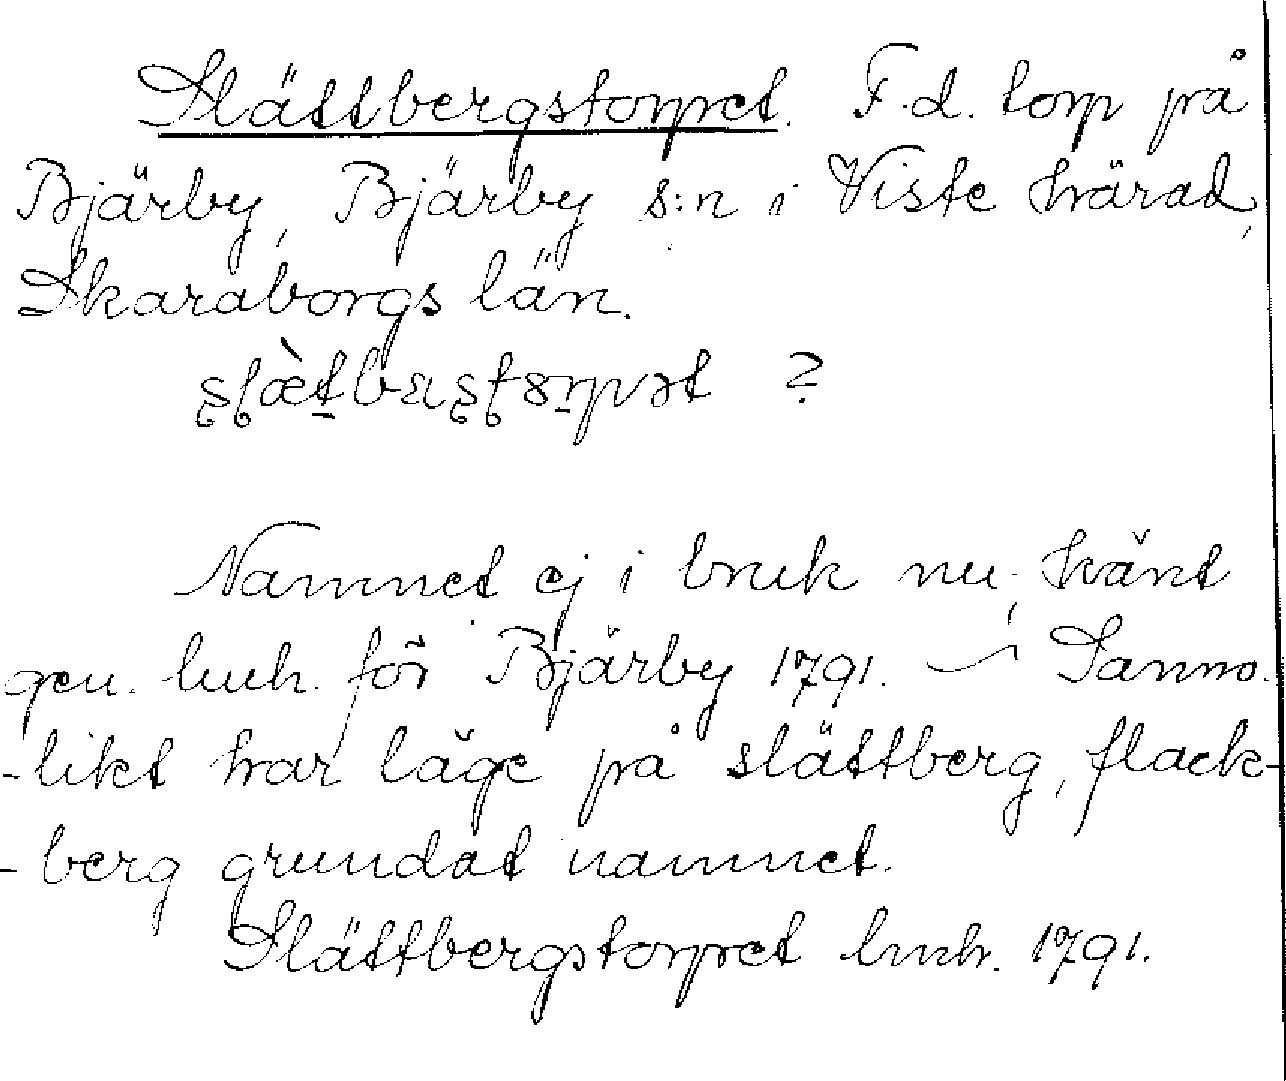 Slättbergstorpet. F.d. torp på
Bjärby, Bjärby s:n i Viste härad,
Skaraborgs län.
?
Namnet ej i bruk nu; känt
gen. huh. för Bjärby 1791. – Sanno-
-likt har läge på slättberg, flack-
-berg grundat namnet.
Slättbergstorpet huh. 1791.